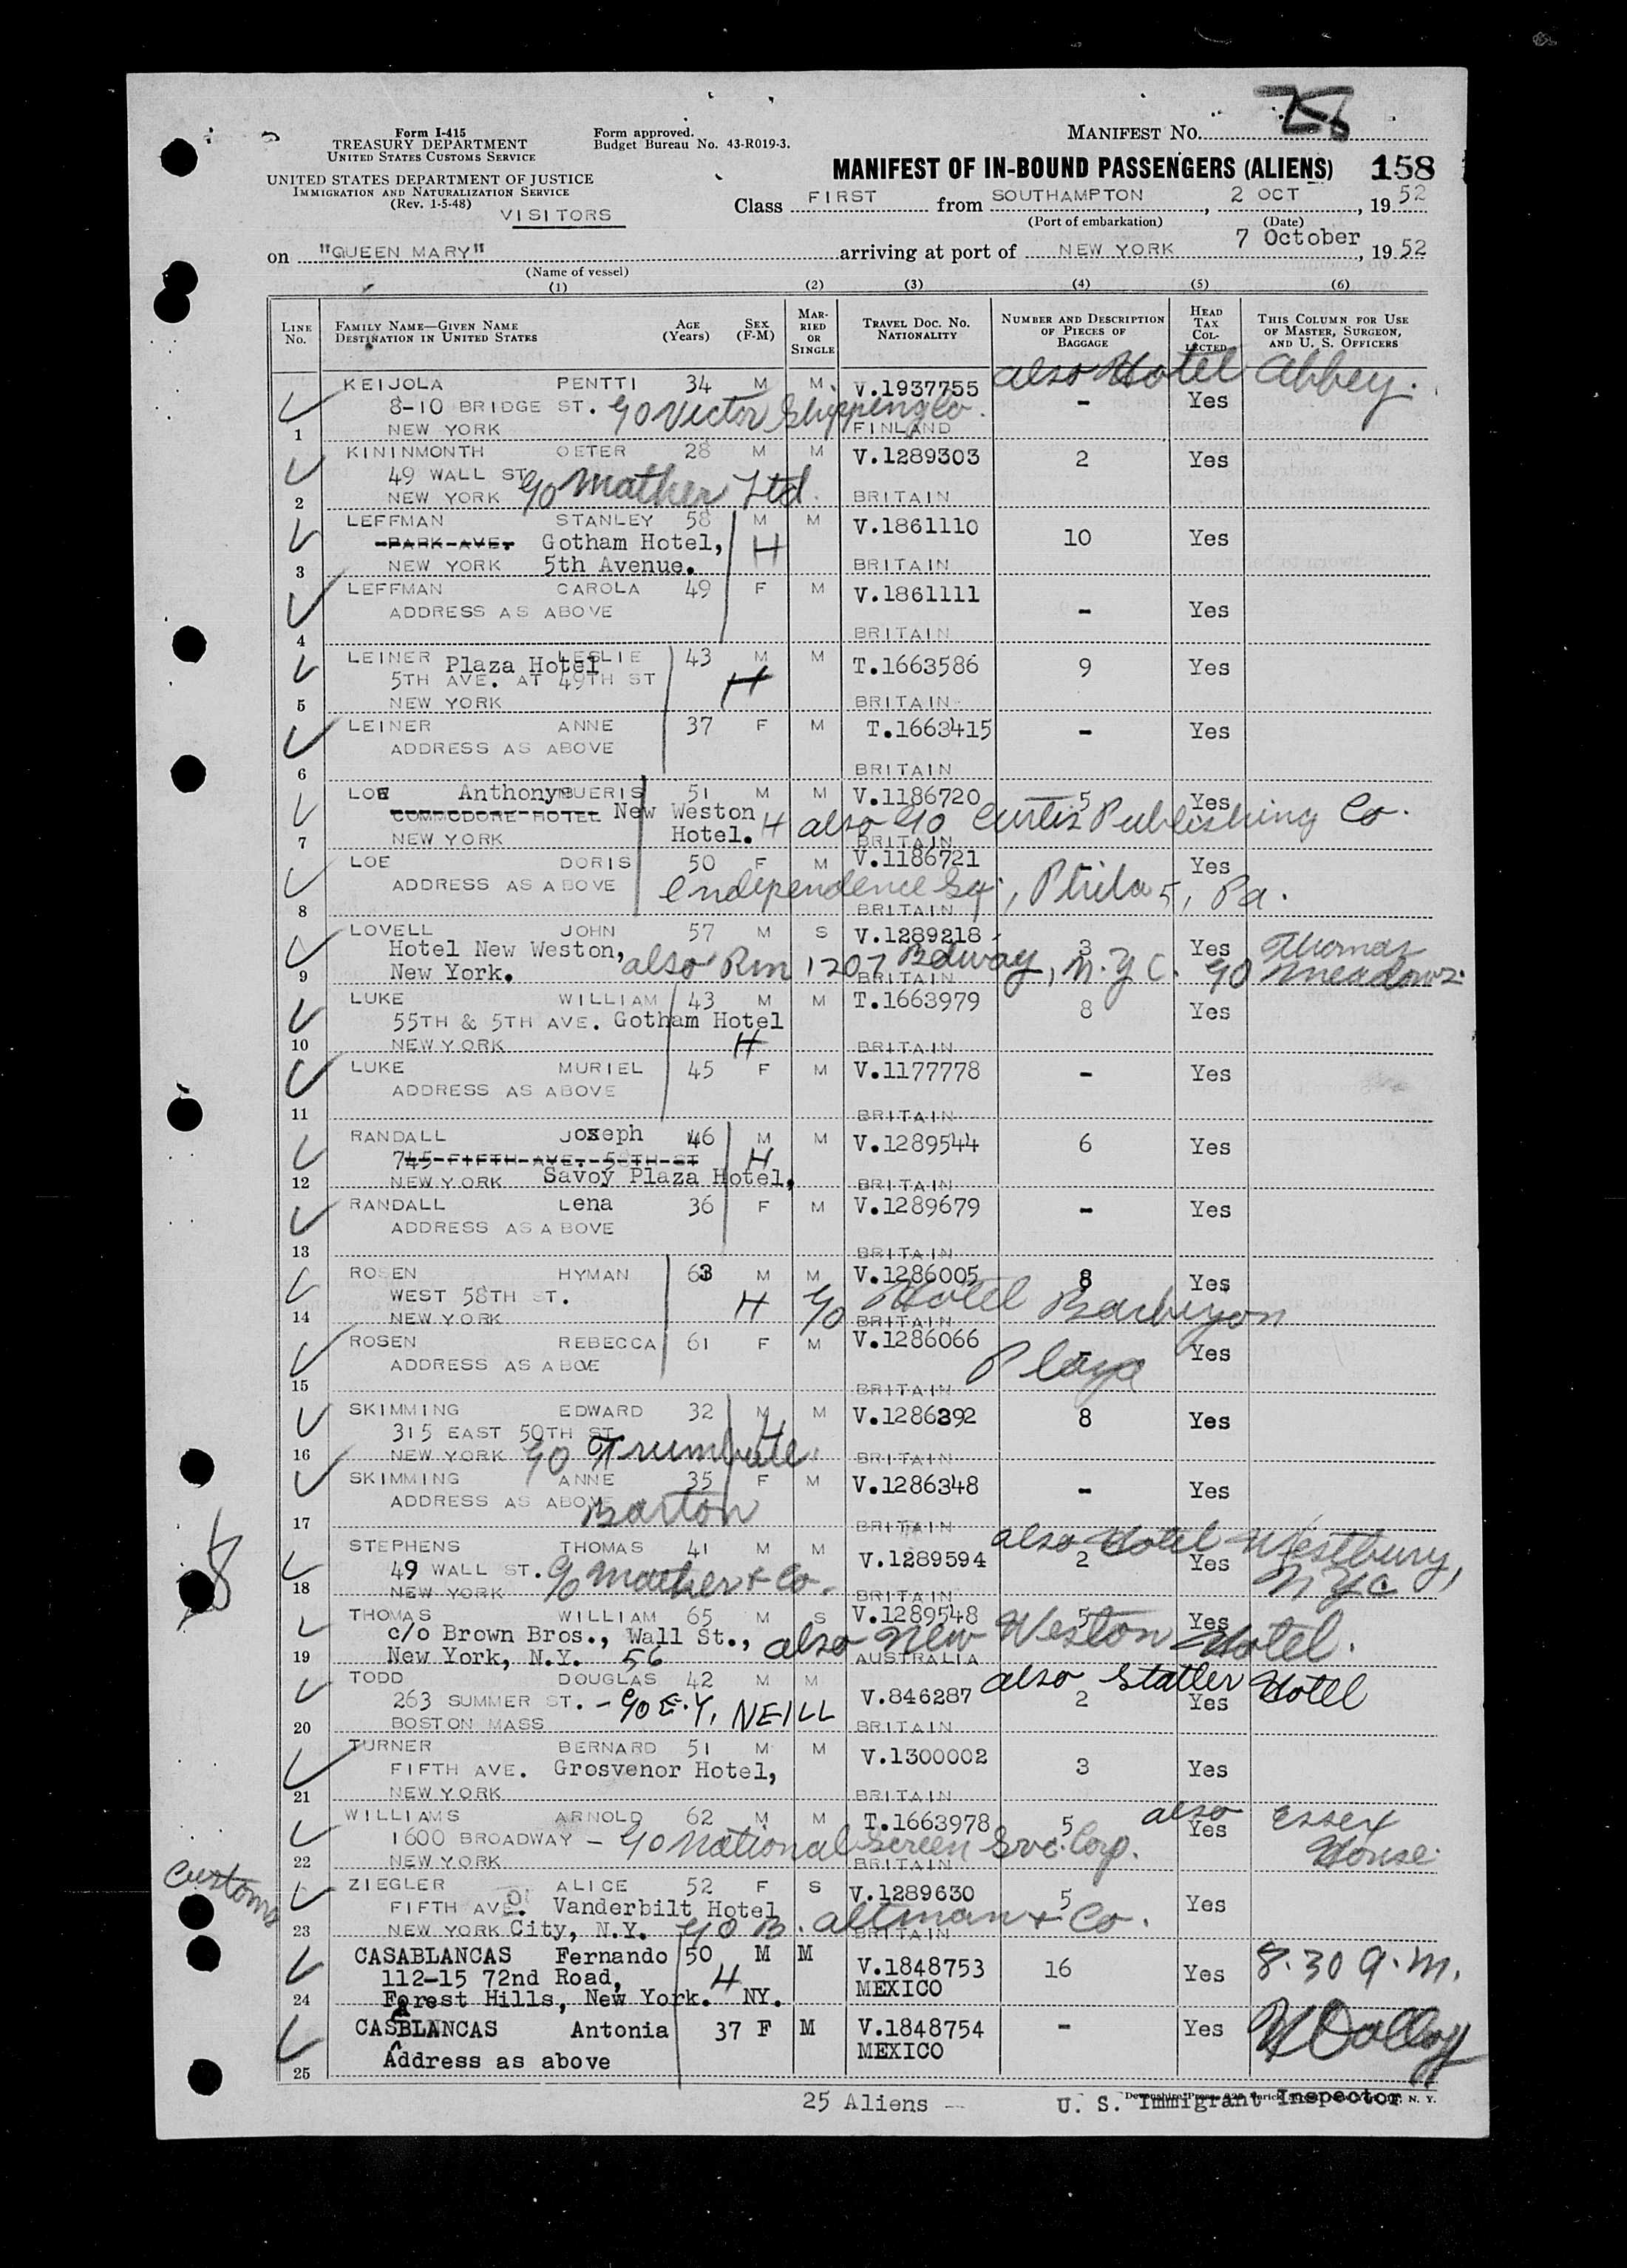 Form I-415
TREASURY DEPARTMENT
UNITED STATES CUSTOMS SERVICE
UNITED STATES DEPARTMENT OF JUSTICE
IMMIGRATION AND NATURALIZATION SERVICE
(Rev. 1-5-48)
VISITORS
Form approved.
Budget Bureau No. 43-R019-3.
MANIFEST No.
MANIFEST OF IN-BOUND PASSENGERS (ALIENS) 158
Class FIRST from SOUTHAMPTON, 2 OCT, 1952
(Port of embarkation) (Date)
on "QUEEN MARY" arriving at port of NEW YORK 7 October, 1952
(Name of vessel)
(1) (2) (3) (4) (5) (6)
LINE No. FAMILY NAME—GIVEN NAME DESTINATION IN UNITED STATES AGE (Years) SEX (F-M) MARRIED OR SINGLE TRAVEL DOC. NO. NATIONALITY NUMBER AND DESCRIPTION OF PIECES OF BAGGAGE HEAD TAX COLLECTED THIS COLUMN FOR USE OF MASTER, SURGEON, AND U. S. OFFICERS
also Hotel Abbey.
KEIJOLA PENTTI 34 M M V.1937755 - Yes
8-10 BRIDGE ST. c/o Victor Shipping Co.
1 NEW YORK FINLAND
KININMONTH OETER 28 M M V.1289303 2 Yes
49 WALL ST c/o Mather Ltd.
2 NEW YORK BRITAIN
LEFFMAN STANLEY 58 M M V.1861110 10 Yes
PARK AVE. Gotham Hotel, H
3 NEW YORK 5th Avenue. BRITAIN
LEFFMAN CAROLA 49 F M V.1861111 - Yes
ADDRESS AS ABOVE
4 BRITAIN
LEINER LESLIE 43 M M T.1663586 9 Yes
Plaza Hotel
5TH AVE. AT 49TH ST H
5 NEW YORK BRITAIN
LEINER ANNE 37 F M T.1663415 - Yes
ADDRESS AS ABOVE
6 BRITAIN
LOE Anthony 51 M M V.1186720 5 Yes
COMMODORE HOTEL New Weston
7 NEW YORK Hotel. H also c/o Curtis Publishing Co. BRITAIN
LOE DORIS 50 F M V.1186721 Yes
ADDRESS AS ABOVE Independence Sq., Phila 5, Pa.
8 BRITAIN
LOVELL JOHN 57 M S V.1289218 3 Yes Thomas
Hotel New Weston, also Rm 1207 Bdway, N.Y.C. c/o Meadows
9 New York. BRITAIN
LUKE WILLIAM 43 M M T.1663979 8 Yes
55TH & 5TH AVE. Gotham Hotel
10 NEW YORK H BRITAIN
LUKE MURIEL 45 F M V.1177778 - Yes
ADDRESS AS ABOVE
11 BRITAIN
RANDALL Joseph 46 M M V.1289544 6 Yes
745 FIFTH AVE. 58TH ST H
12 NEW YORK Savoy Plaza Hotel, BRITAIN
RANDALL Lena 36 F M V.1289679 - Yes
ADDRESS AS ABOVE
13 BRITAIN
ROSEN HYMAN 63 M M V.1286005 8 Yes
WEST 58TH ST. H c/o Hotel Barbizon
14 NEW YORK BRITAIN
ROSEN REBECCA 61 F M V.1286066 - Yes
ADDRESS AS ABOVE Plaza
15 BRITAIN
SKIMMING EDWARD 32 M M V.1286392 8 Yes
315 EAST 50TH ST
16 NEW YORK c/o Trumbull BRITAIN
SKIMMING ANNE 35 F M V.1286348 - Yes
ADDRESS AS ABOVE Barton
17 BRITAIN
also Hotel Westbury, NYC
STEPHENS THOMAS 41 M M V.1289594 2 Yes
49 WALL ST. c/o Mather & Co.
18 NEW YORK BRITAIN
THOMAS WILLIAM 65 M S V.1289548 5 Yes
c/o Brown Bros., Wall St., also New Weston Hotel.
19 New York, N.Y. 56 AUSTRALIA
TODD DOUGLAS 42 M M V.846287 2 Yes also Statler Hotel
263 SUMMER ST. - c/o E.Y. NEILL
20 BOSTON MASS BRITAIN
TURNER BERNARD 51 M M V.1300002 3 Yes
FIFTH AVE. Grosvenor Hotel,
21 NEW YORK BRITAIN
WILLIAMS ARNOLD 62 M M T.1663978 5 Yes also Essex House
1600 BROADWAY - c/o National Screen Svc. Corp.
22 NEW YORK BRITAIN
Customs
ZIEGLER ALICE 52 F S V.1289630 5 Yes
FIFTH AVE. Vanderbilt Hotel
23 NEW YORK City, N.Y. c/o B. Altman & Co. BRITAIN
CASABLANCAS Fernando 50 M M V.1848753 16 Yes 8.30 A.M.
112-15 72nd Road, H MEXICO
24 Forest Hills, New York. NY.
CASABLANCAS Antonia 37 F M V.1848754 - Yes
Address as above MEXICO
25
25 Aliens -- U. S. Immigrant Inspector
N. Y.